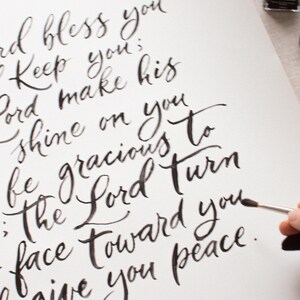 rd bless you
Keep you;
Lord make his
shine on you
be gracious to
; the Lord turn
face toward you
give you peace.